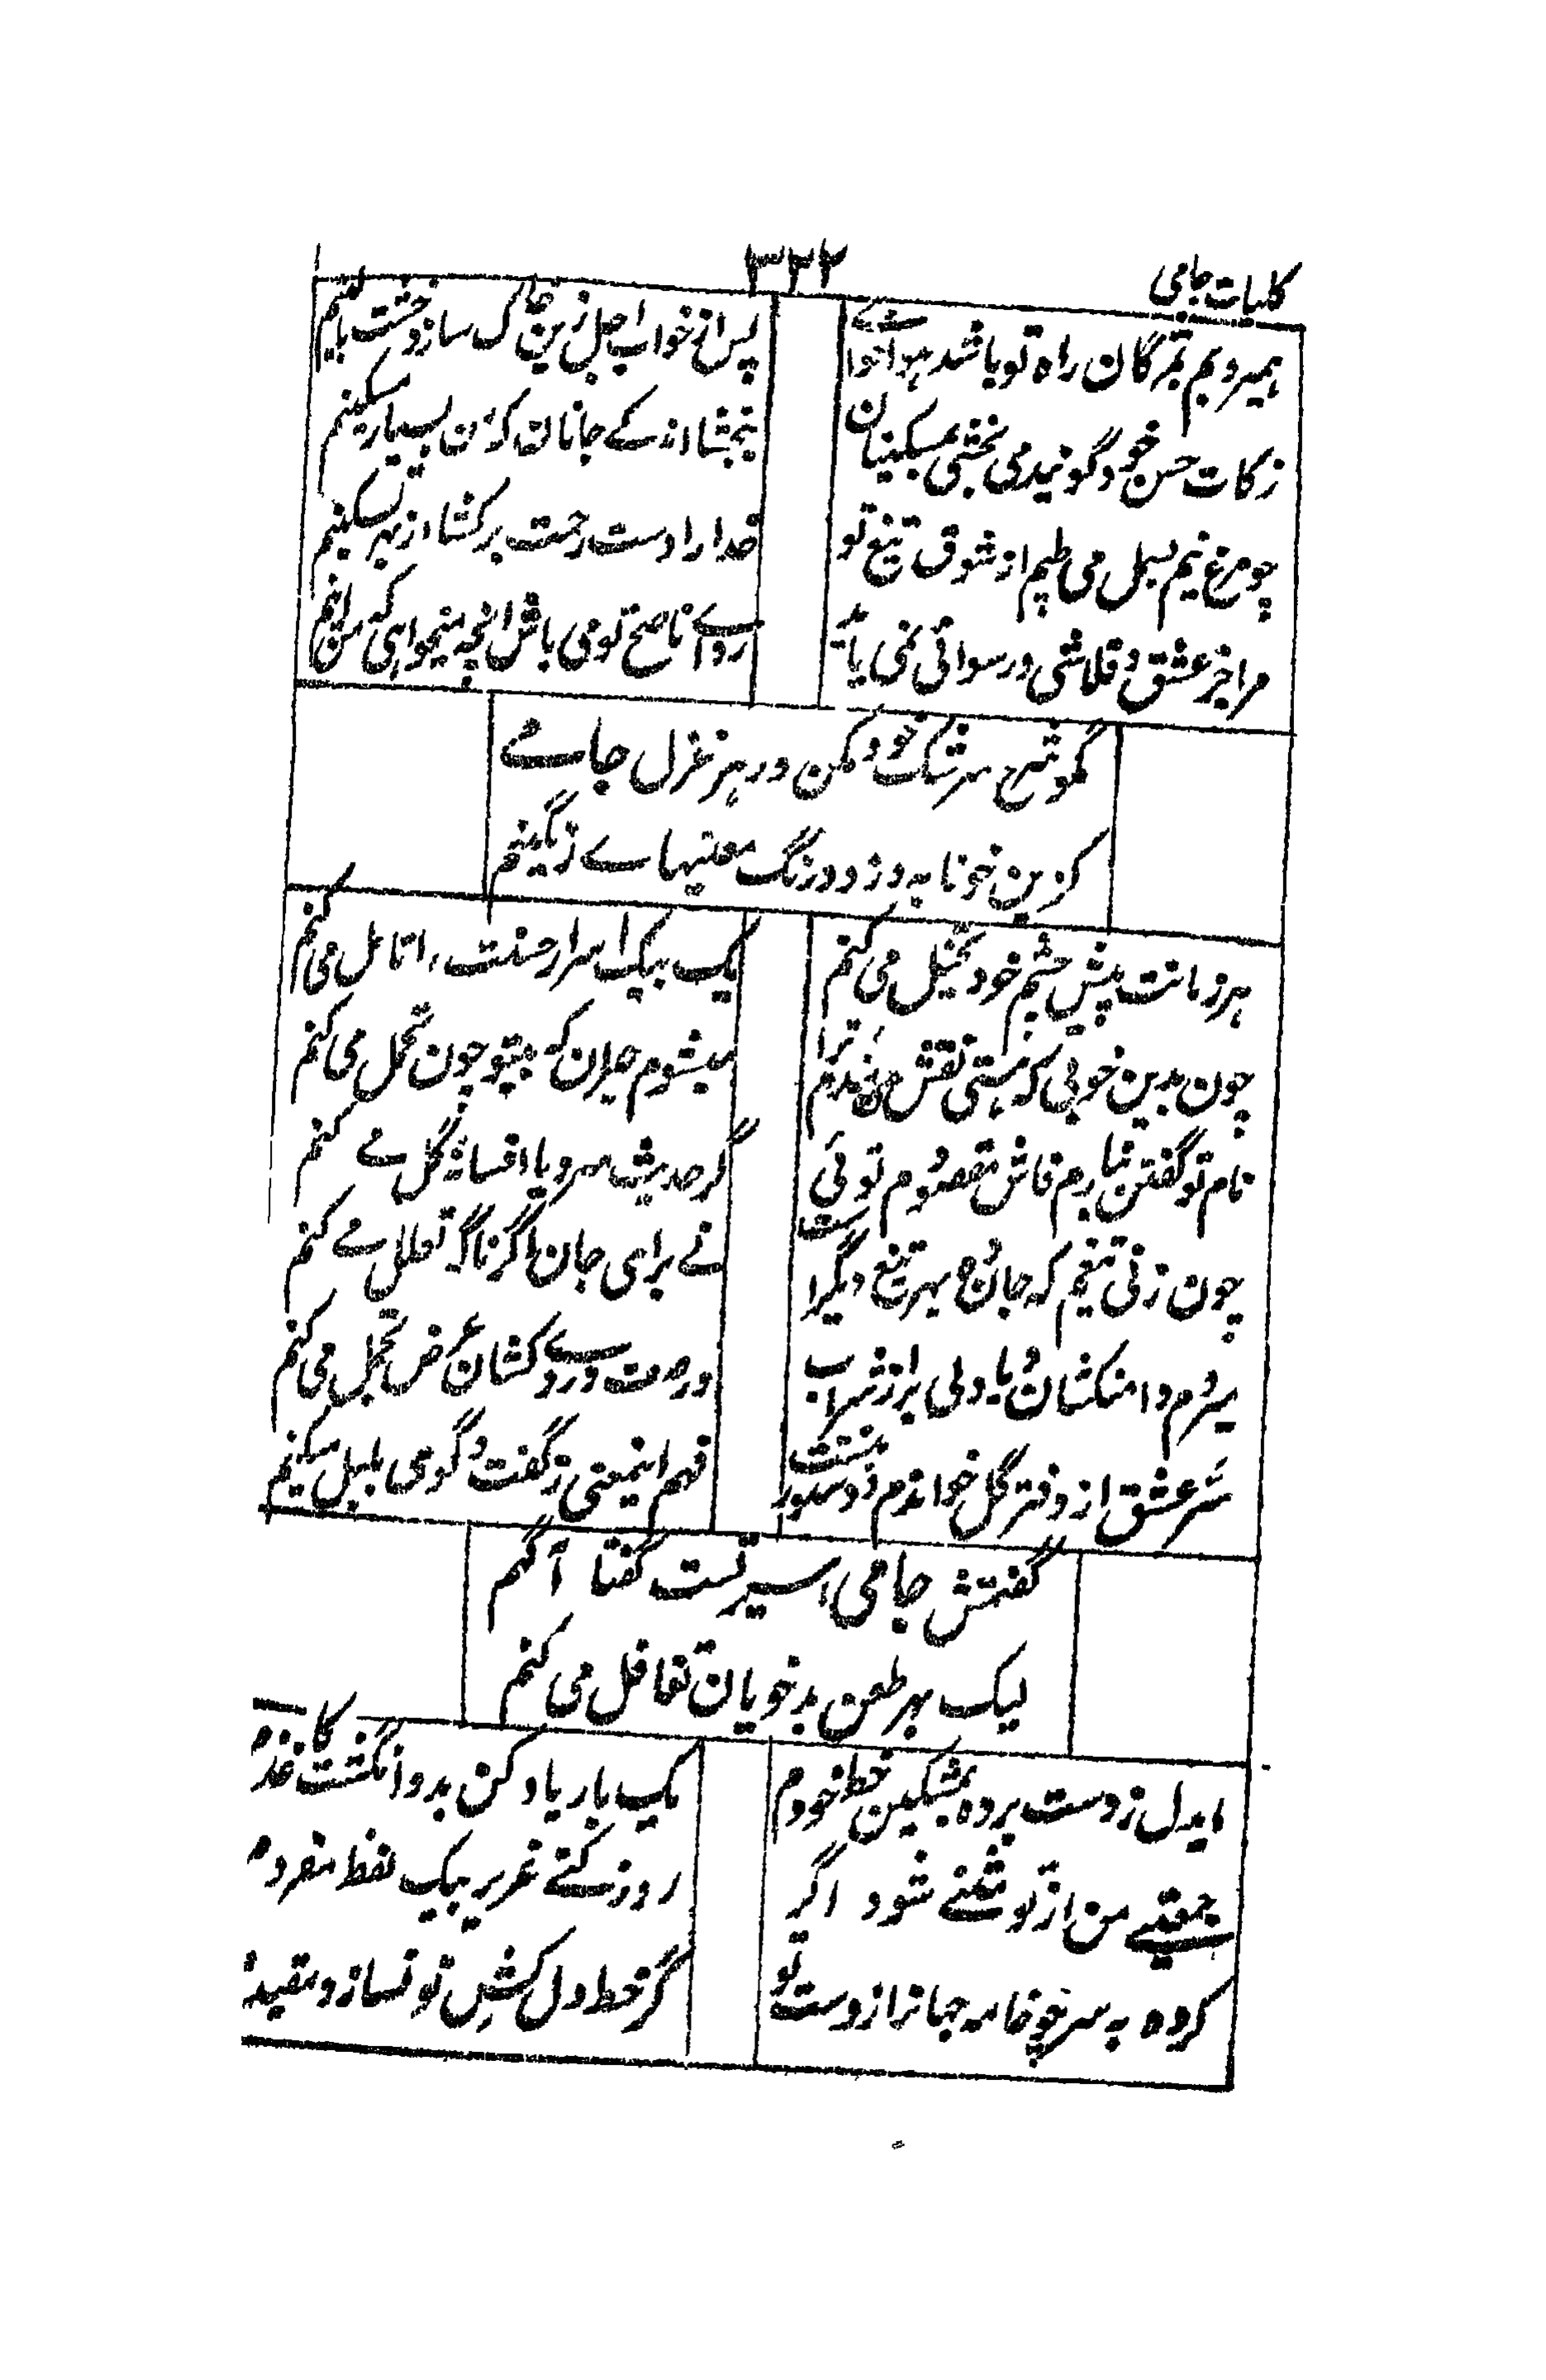 کلیات جامی
۳۳۲
همیروبم بمژگان راه تو باشد هوا خواهے
پس از خواب اجل زین خاک سازد خشت بالینم
زکات حسن خود گویند می بخشی بمسکینان
ببخشا اندکے جانان که من بسیار مسکینم
چو مرغ نیم بسمل می طپم از شوق تیغ تو
خدارا دست رحمت برکشا از بهر تسکینم
مرا جز عشق و قلاشی و رسوائی نمی یابد
رو اے ناصح تو می باش انچه میخواهی که من اینم
مگو شرح سرشک خود مکن در هر غزل جامے
کزین خونابه دزدد رنگ معنیهاے رنگینم
هر زمانت پیش چشم خود تخیل می کنم
یک بیک اسرار حسنت را تامل می کنم
چون بدین خوبی که هستی نقش می بندم ترا
میشوم حیران که بیتو چون تحمل می کنم
نام تو گفتن نیارم فاش مقصودم توئی
گر حدیث سرو یا افسانهٔ گل مے کنم
چون زنی تیغم که جان ده بهر تیغ دیگر است
نے برای جان اگر ناگه تعلل مے کنم
میروم دامنکشان و یا دلی پر از شراب
در صف دردے کشان عرض تجمل می کنم
سر عشق از دفتر گل خواندم
فهم اینمعنی ز گفت و گوی بلبل میکنم
گفتمش جامی اسیر تست گفتا آگهم
لیک بهر طعن بدخویان تغافل می کنم
ایدل ز دست برده بمشکین خط خودم
یک بار یاد کن بدو انگشت کاغذم
جمعیتے من از تو شود اگر
روزے کنے غریر بیک لفظ مفردم
کرده به سر چو خامه جهانرا ز دست تو
گر خط دل کش تو نسازد مقیدم